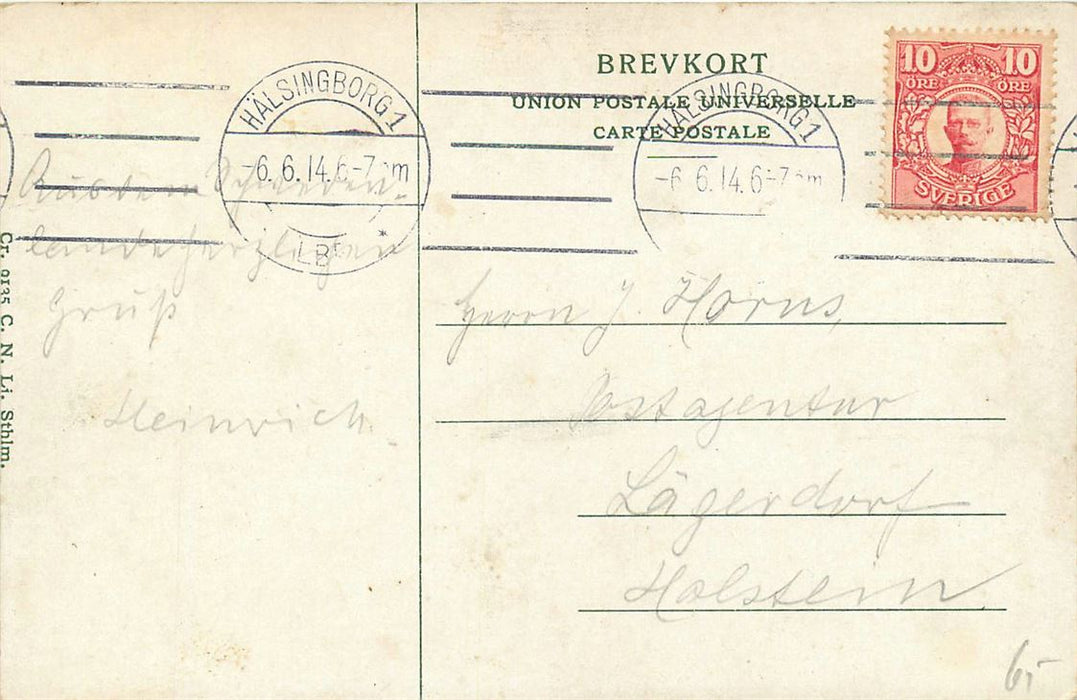 BREVKORT
UNION POSTALE UNIVERSELLE
CARTE POSTALE
10 10
ÖRE ÖRE
SVERIGE
HÄLSINGBORG 1
-6.6.14.6-7 m
LBR
*
HÄLSINGBORG 1
-6 6.14.6-7 m
Aus dem Schweden-
lande herzlichen
Gruß
Heinrich
Herrn J. Horns,
Postagentur
Lägerdorf
Holstein
65
Cr. 9135 C. N. Li. Sthlm.